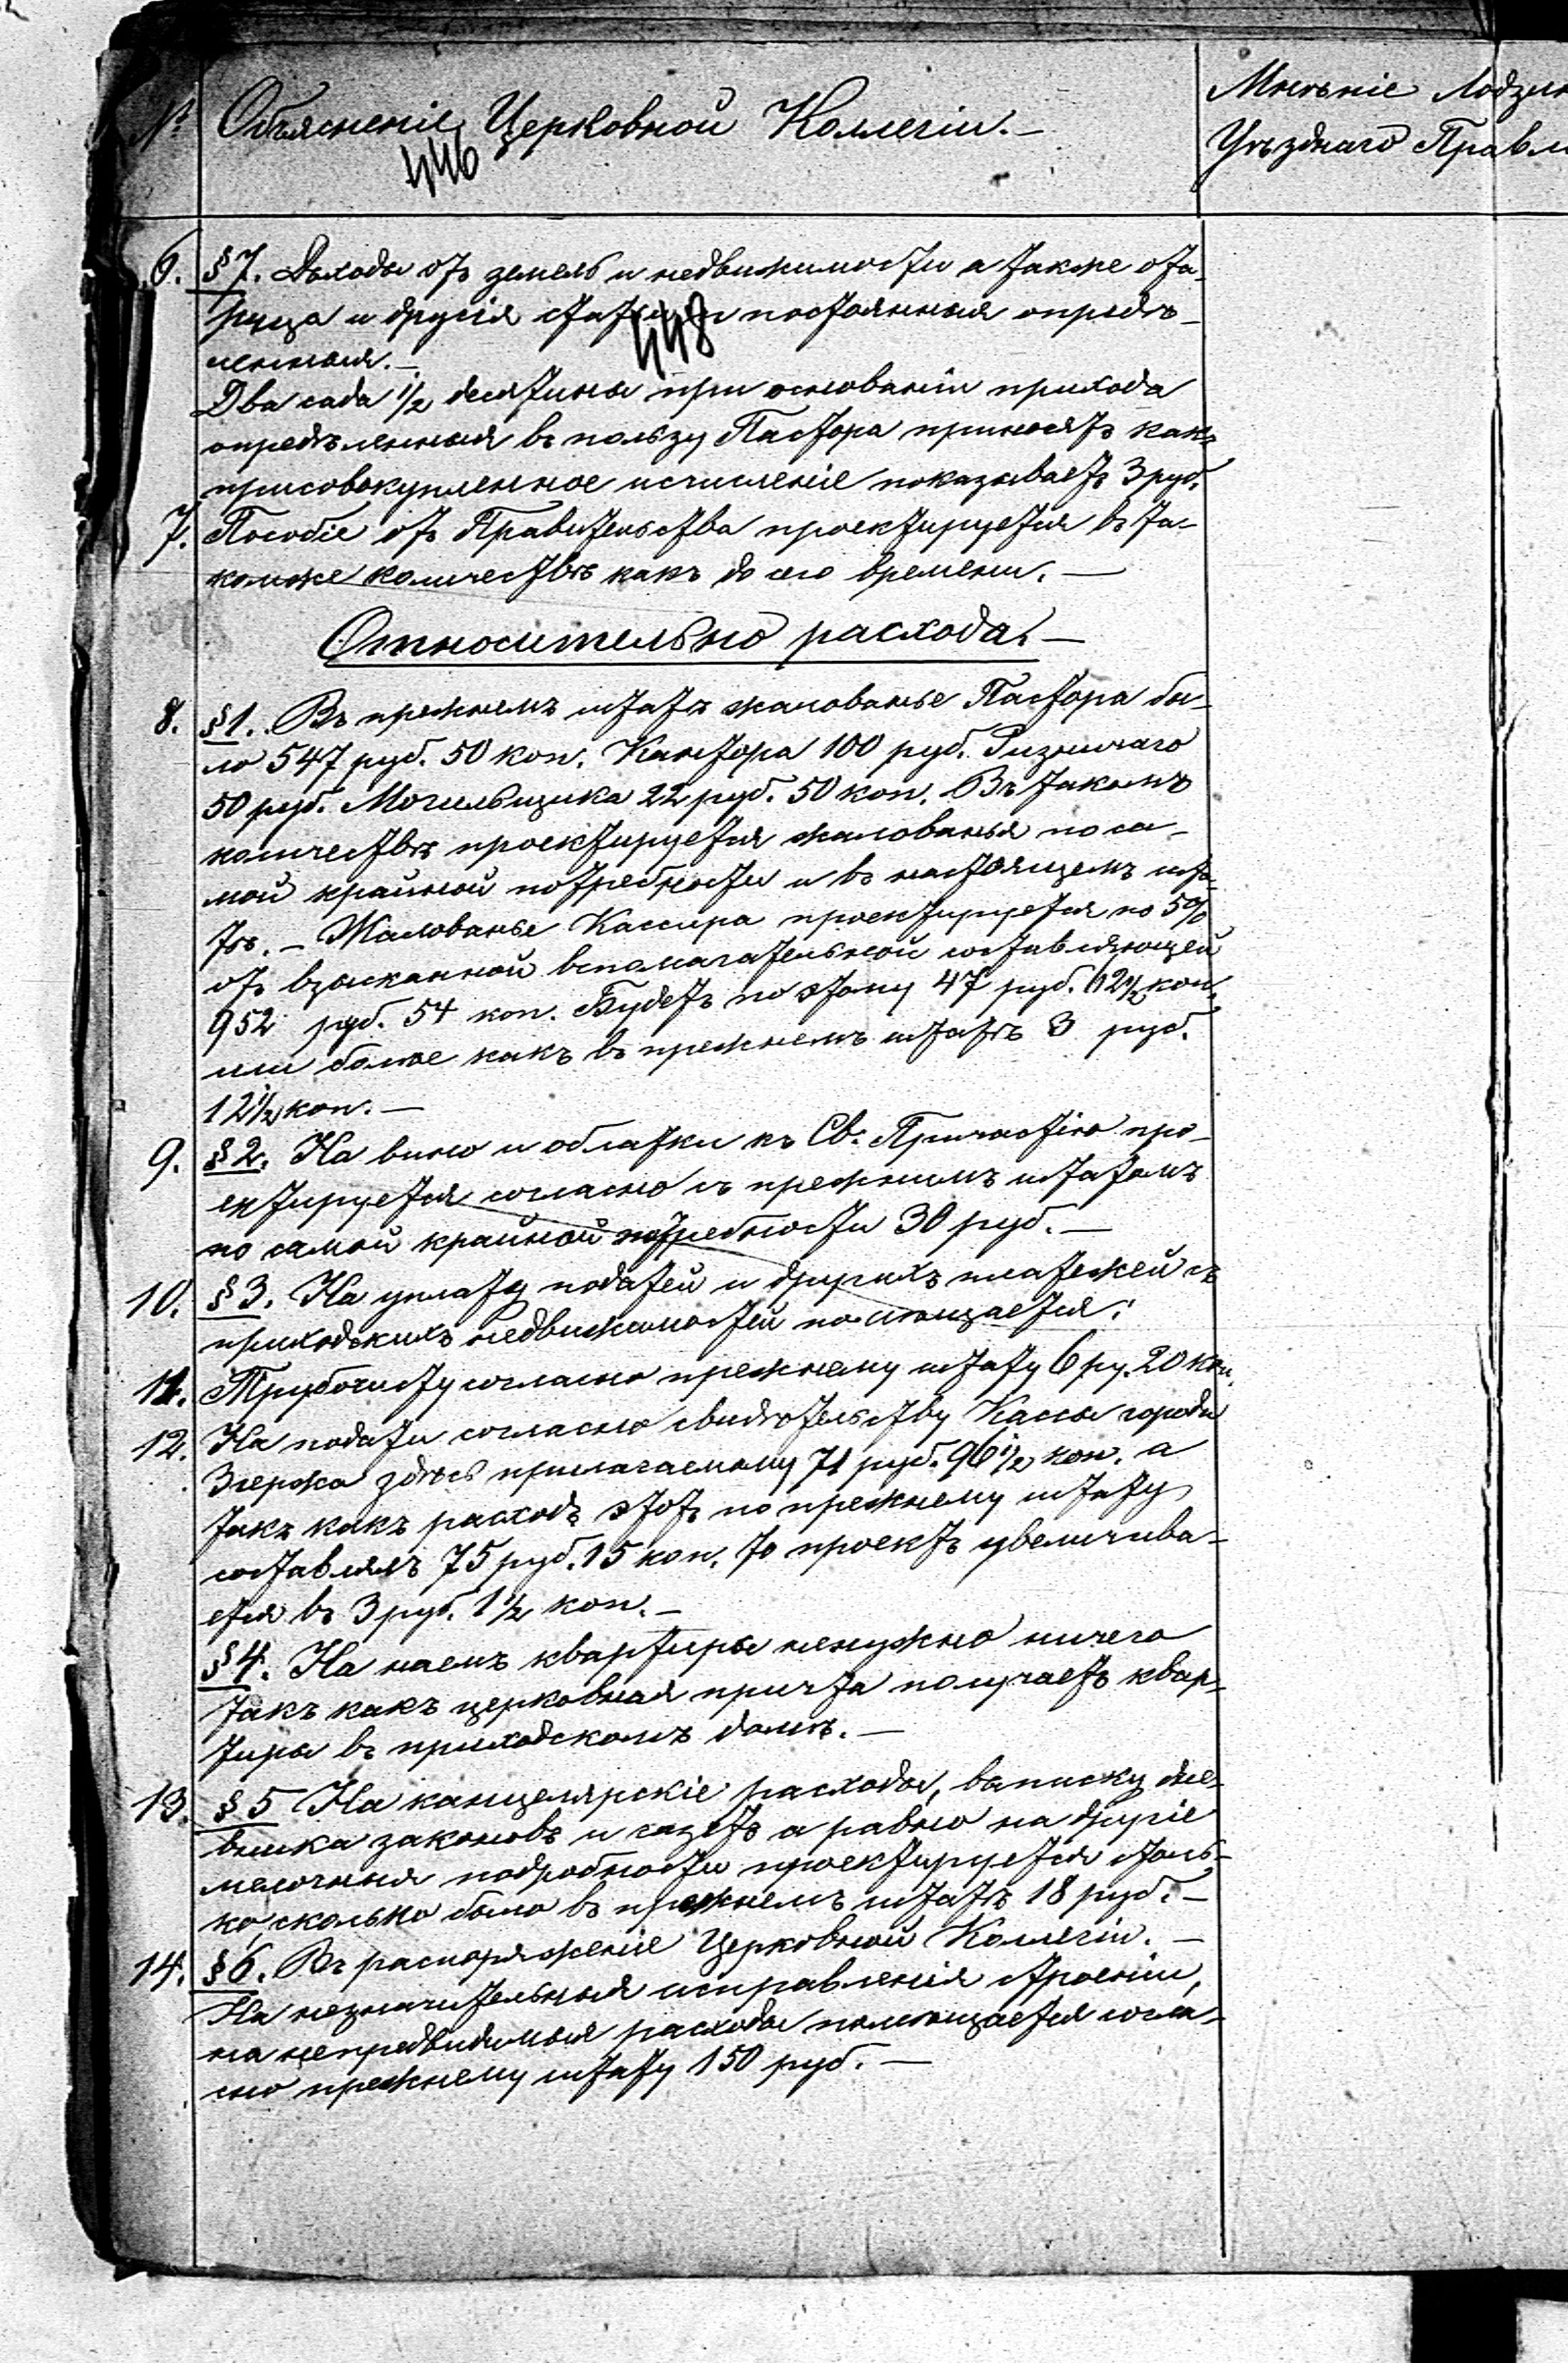 № Объясненіе Церковной Коллегіи. —
Мнѣніе Лодзин
Уѣзднаго Правл
446
6. §7. Доходы отъ земель и недвижимости а также ота-
рица и другія статьи постоянныя опредѣ-
ленныя. —
448
Два сада 1/2 десятины при основаніи прихода
опредѣленныя въ пользу Пастора приносятъ какъ
присовокупленное исчисленіе показываетъ 3 руб.
7. Пособіе отъ Правительства проектируется въ та-
комже количествѣ какъ до сего времени. —
Относительно расхода. —
8. §1. Въ прежнемъ штатѣ жалованье Пастора бы-
ло 547 руб. 50 коп. Кантора 100 руб. Ризничаго
50 руб. Могильщика 22 руб. 50 коп. Въ такомъ
количествѣ проектируется жалованья по са-
мой крайной потребности и въ настоящемъ шта-
тѣ. — Жалованье Кассира проектируется по 5%
отъ взысканной вспомагательной составляющей
952 руб. 54 коп. Будетъ по этому 47 руб. 62 1/2 коп.
или болѣе какъ въ прежнемъ штатѣ 3 руб.
12 1/2 коп. —
9. §2. На вино и облатки къ Св. Причастію про-
ектируется согласно съ прежнимъ штатомъ
по самой крайной потребности 30 руб. —
10. §3. На уплату податей и другихъ платежей съ
приходскихъ недвижимостей помѣщается:
11. Трубочисту согласно прежнему штату 6 ру. 20 коп.
12. На подати согласно свидѣтельству Кассы города
Згержа здѣсь прилагаемому 71 руб. 96 1/2 коп. а
такъ какъ расходъ этотъ по прежнему штату
составлялъ 75 руб. 15 коп. то проектъ увеличива-
ется въ 3 руб. 1 1/2 коп. —
§4. На наемъ квартиры ненужно ничего
такъ какъ церковная причта получаетъ квар-
тиры въ приходскомъ домѣ. —
13. §5 На канцелярскіе расходы, выписку дне-
вника законовъ и газетъ а равно на другіе
мелочныя подробности проектируется столь-
ко, сколько было въ прежнемъ штатѣ 18 руб. —
14. §6. Въ распоряженіе Церковной Коллегіи. —
На незначительныя исправленія строеніи,
на непредвидимыя расходы помѣщается согла-
сно прежнему штату 150 руб. —